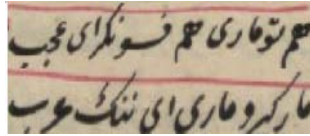 هم تو ماری هم فسونگر ای عجب
مار گیر و ماری ای ننگ عرب